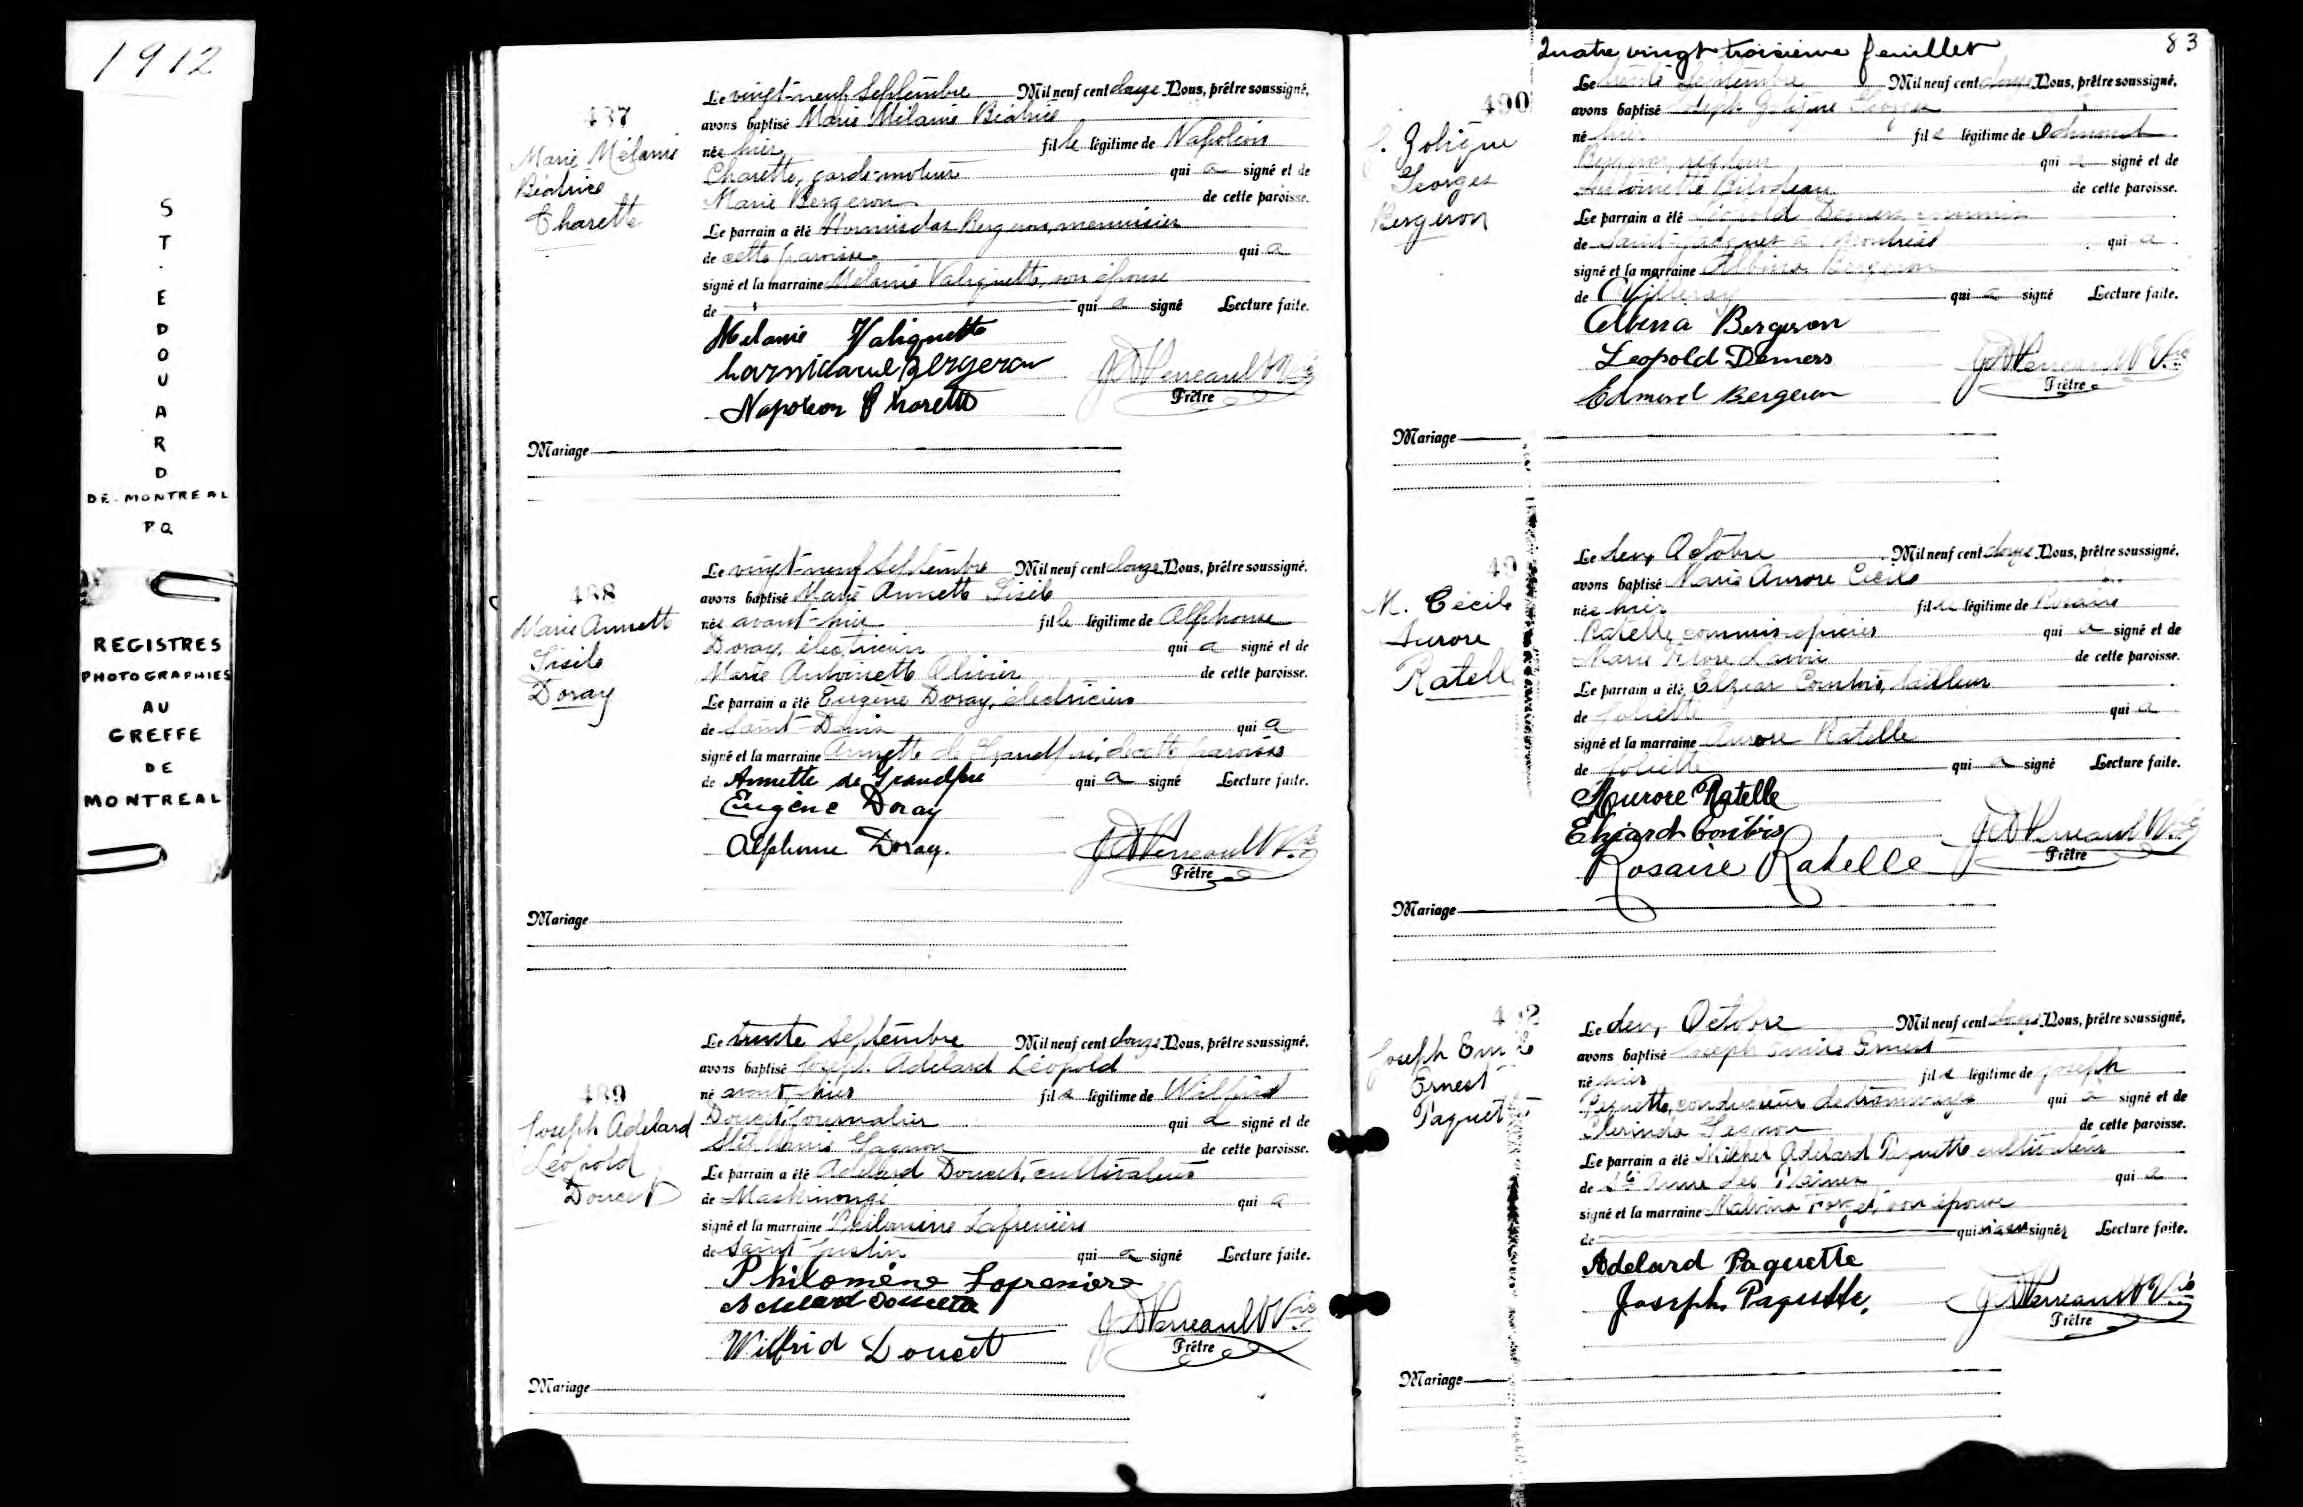 1912
ST. EDOUARD
DE MONTREAL
PQ
REGISTRES
PHOTOGRAPHIES
AU
GREFFE
DE
MONTREAL
487
Marie Mélanie
Béatrice
Charette
Le vingt-neuf Septembre Mil neuf cent douze Nous, prêtre soussigné,
avons baptisé Marie Mélanie Béatrice
née hier fille légitime de Napoléon
Charette, garde-moteur qui a signé et de
Marie Bergeron de cette paroisse.
Le parrain a été Hormisdas Bergeron, menuisier
de cette paroisse qui a
signé et la marraine Mélanie Valiquette, son épouse
de qui a signé Lecture faite.
Melanie Valiquette
Bergeron
Napoleon Charette
J A Perreault Vic
Prêtre
Mariage
488
Marie Annette
Cisile
Doray
Le vingt-neuf Septembre Mil neuf cent douze Nous, prêtre soussigné,
avons baptisé Marie Annette Cisile
née avant-hier fille légitime de Alphonse
Doray, électricien qui a signé et de
Marie Antoinette Olivier de cette paroisse.
Le parrain a été Eugène Doray, électricien
de Saint-Denis qui a
signé et la marraine Annette de Grandpré, de cette paroisse
de Annette de Grandpre qui a signé Lecture faite.
Eugène Doray
Alphonse Doray.
J A Perreault Vic
Prêtre
Mariage
489
Joseph Adelard
Léopold
Doucet
Le trente Septembre Mil neuf cent douze Nous, prêtre soussigné,
avons baptisé Joseph Adelard Léopold
né avant-hier fils légitime de Wilfrid
Doucet, journalier qui a signé et de
Gagnon de cette paroisse.
Le parrain a été Adelard Doucet, cultivateur
de Maskinongé qui a
signé et la marraine Philomène Lafrenière
de Saint-Justin qui a signé Lecture faite.
Philomène Lafreniere
Adelard Doucet
Wilfrid Doucet
J A Perreault Vic
Prêtre
Mariage
Quatre vingt troisième feuillet 83
490
J. Zotique
Georges
Bergeron
Le trente Septembre Mil neuf cent douze Nous, prêtre soussigné,
avons baptisé Joseph Zotique Georges
né hier fils légitime de Edmond
Bergeron, qui a signé et de
Antoinette Bilodeau de cette paroisse.
Le parrain a été Léopold Demers, commis
de Saint-Jacques à Montréal qui a
signé et la marraine Albina Bergeron
de Villeray qui a signé Lecture faite.
Albina Bergeron
Leopold Demers
Edmond Bergeron
J A Perreault Vic
Prêtre
Mariage
49
M. Cécile
Aurore
Ratelle
Le deux Octobre Mil neuf cent douze Nous, prêtre soussigné,
avons baptisé Marie Aurore Cécile
née hier fille légitime de Rosaire
Ratelle, commis-épicier qui a signé et de
Marie de cette paroisse.
Le parrain a été Elzéar Courtois, tailleur
de Joliette qui a
signé et la marraine Aurore Ratelle
de Joliette qui a signé Lecture faite.
Aurore Ratelle
Rosaire Ratelle
J A Perreault Vic
Prêtre
Mariage
4 2
Joseph Emile
Ernest
Paquette
Le deux Octobre Mil neuf cent douze Nous, prêtre soussigné,
avons baptisé Joseph Emile Ernest
né hier fils légitime de Joseph
Paquette, conducteur de tramways qui a signé et de
Clerinda Gagnon de cette paroisse.
Le parrain a été Adelard Paquette cultivateur
de Ste Anne des Plaines qui a
signé et la marraine Malvina Forget, son épouse
de qui n'a su signer Lecture faite.
Adelard Paquette
Joseph Paquette,
J A Perreault Vic
Prêtre
Mariage